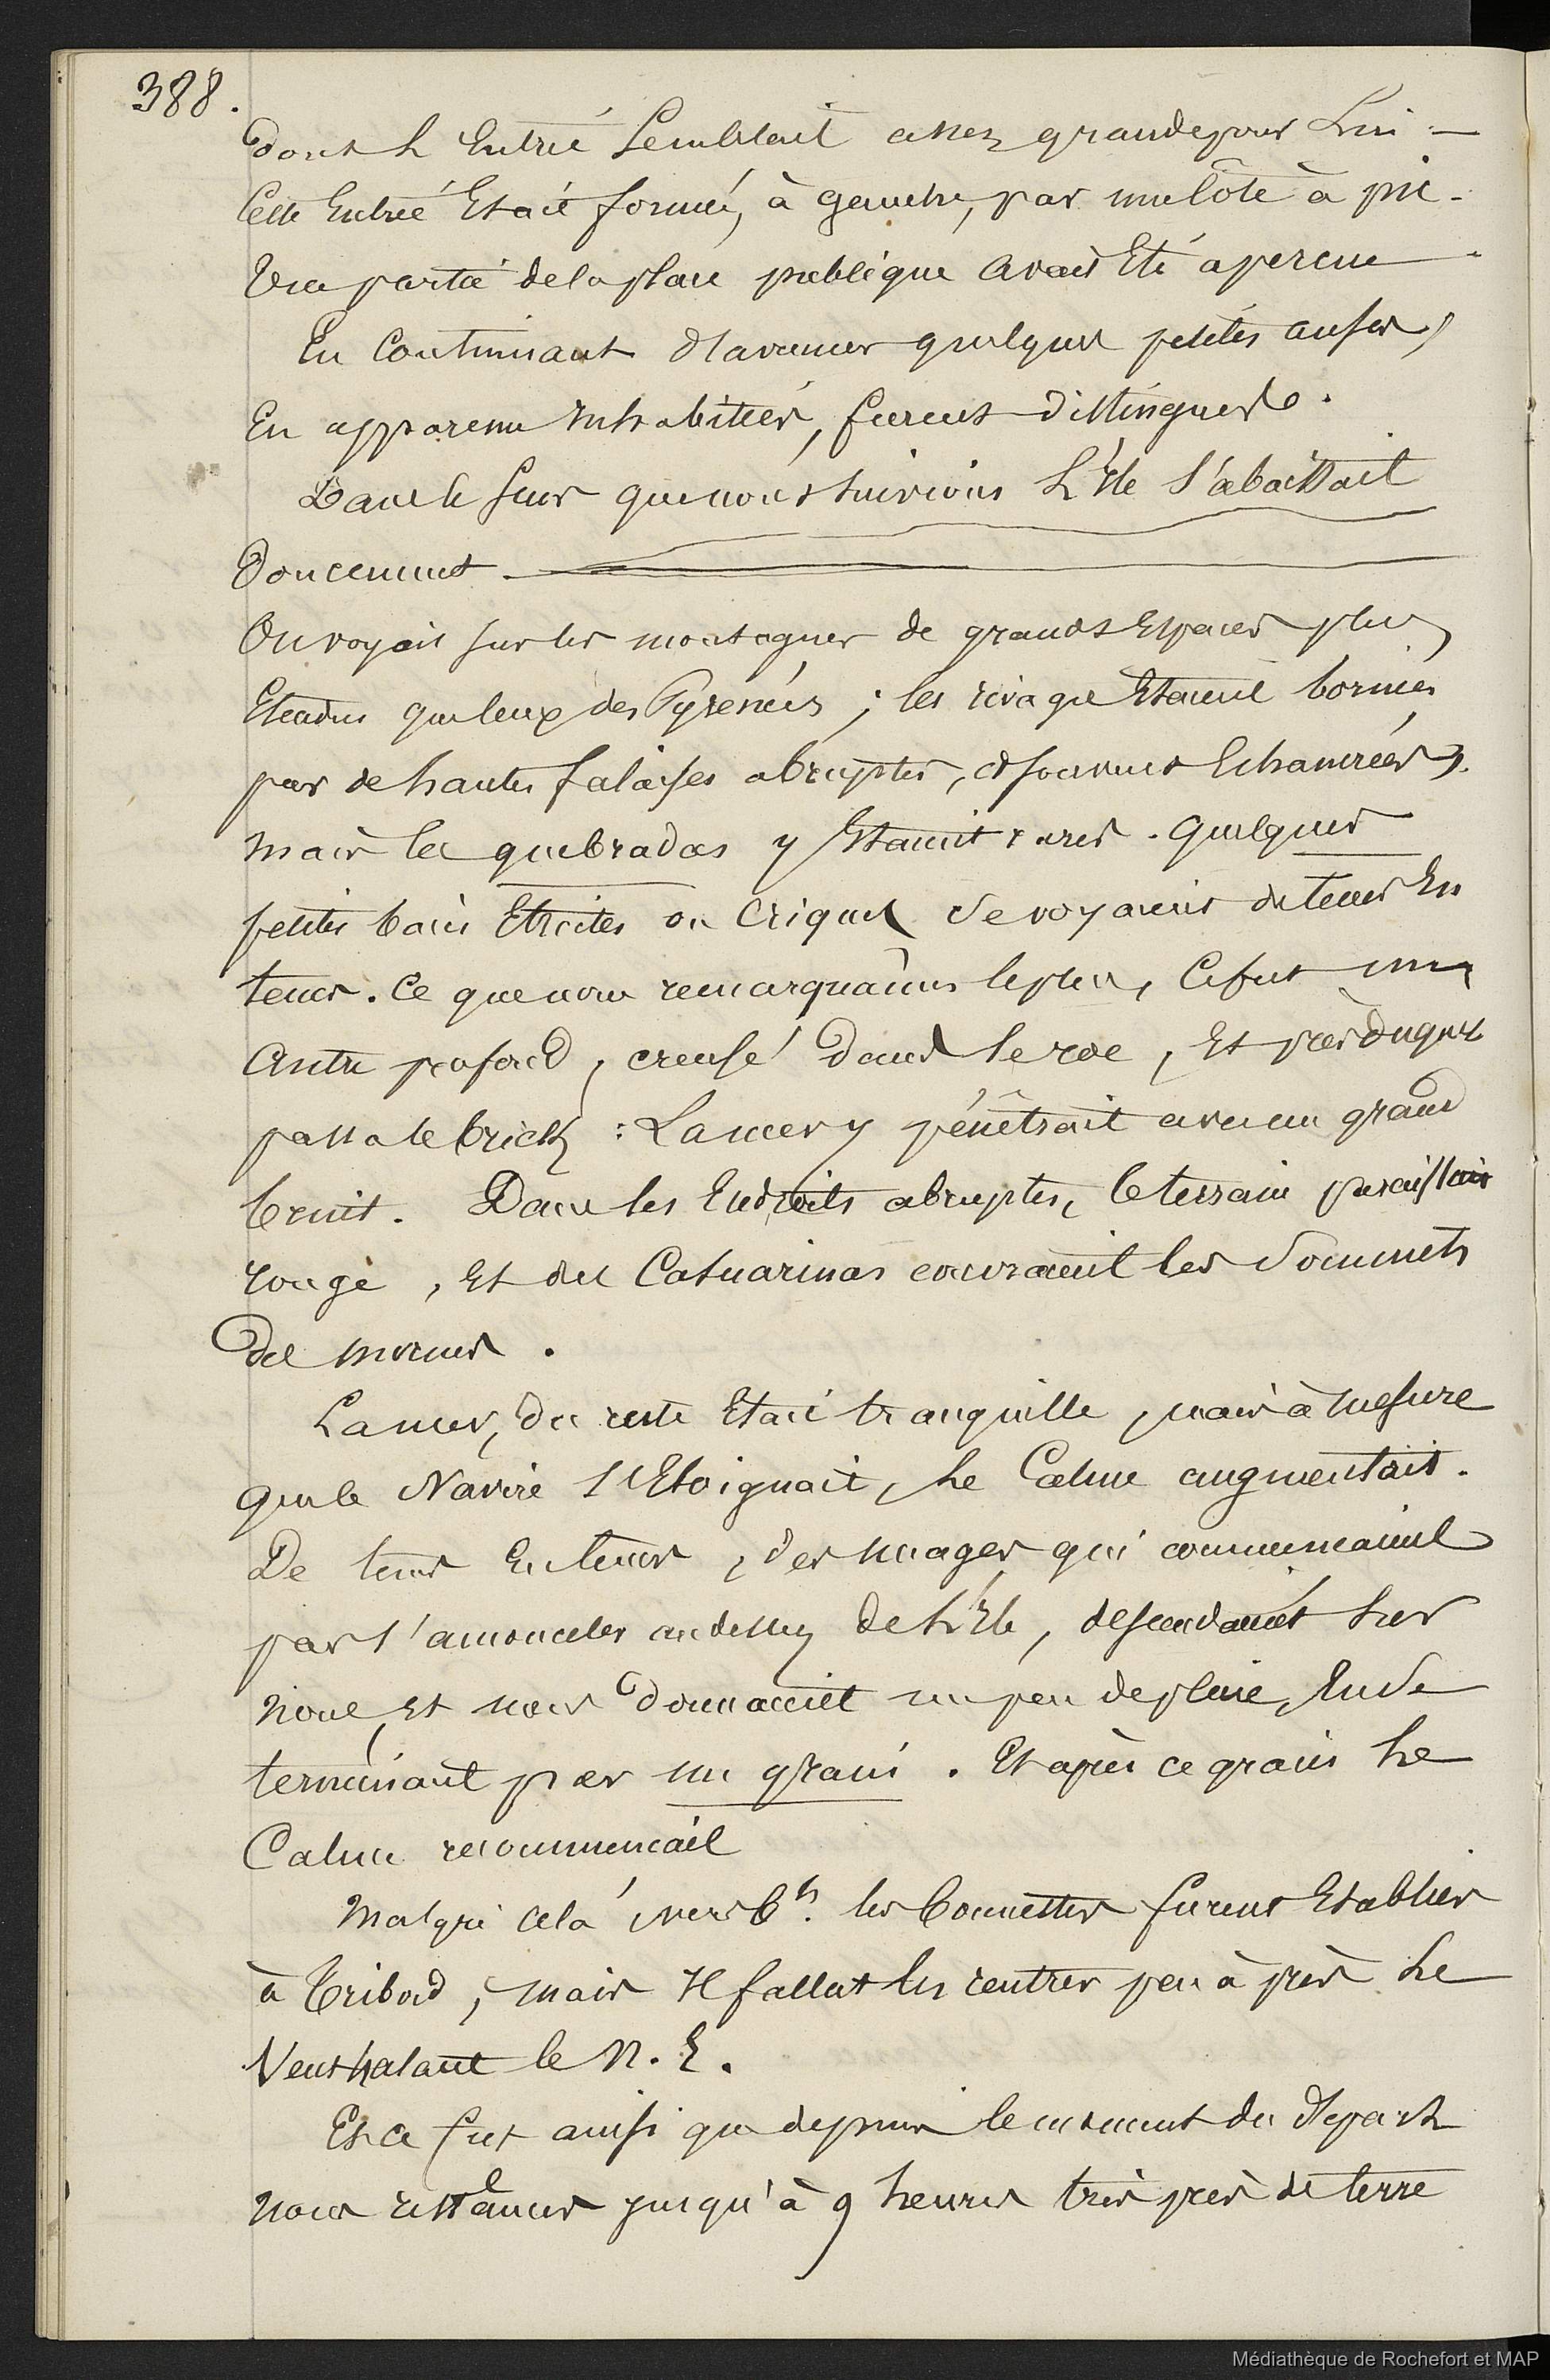 388.
dont l'Entrée Semblait assez grande pour Lui –
Cette Entrée Etait formée, à gauche, par une Côte à pic –
Une partie de la place publique avait Eté apercue –
En Continuant d'avancer quelques petites anses,
En apparence Inhabitées, furent distinguées.
Dans le sens que nous suivions L'Ile S'abaissait
Doucement –
On voyait sur les montagnes de grands Espaces plus
Etendus que ceux des Pyrenées ; les rivages Etaient bornés
par de hautes falaises abruptes, et souvent Echancrées,
mais les quebradas y Etaient rares. Quelques
petites baies Etroites ou Criques Se voyaient de tems En
tems. Ce que nous remarquâmes le plus, Ce fut un
Antre profond, creusé dans le roc, Et près duquel
passa le brick : La mer y pénétrait avec un grand
bruit. Dans les Endroits abruptes, le terrain paraissait
rouge, Et des Casuarinas couvraient les Sommets
des mornes.
La mer, du reste Etait tranquille, mais à mesure
que le Navire s'Eloignait, Le Calme augmentait.
De tems En tems, des nuages qui commencaient
par s'amonceler au dessus de L'Ile, descendaient sur
nous Et nous donnaient un peu de pluie, En se
terminant par un grain. Et après ce grain Le
Calme recommencait
Malgré cela, vers 6h. les bonnettes furent Etablies
à Tribord, mais Il fallut les rentrer peu après Le
Vent halant le N. E.
Et ce fut ainsi que depuis le moment du départ
nous restâmes jusqu'à 9 heures très près de terre
Médiathèque de Rochefort et MAP